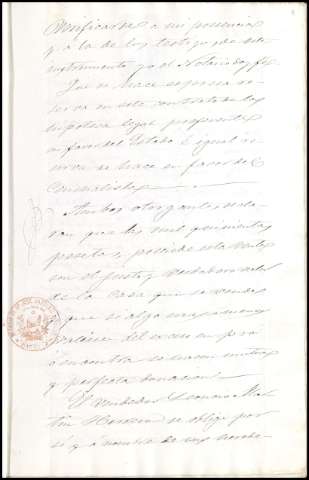 verificarse a mi presencia
y a la de los testigos de este
instrumento yo el Notario doy fe
Que se hace expresa re-
serva en este contrato de la
hipoteca legal preferente
en favor del Estado é igual re-
serva se hace en favor de
Ambos otorgantes decla-
ran que las mil quinientas
pesetas precio de esta venta
son el justo y verdadero valor
de la casa que se vende
y que si algo mas o menos
valiese del exceso en pro
ó en contra se hacen mutua
y perfecta donacion
El vendedor Mar-
tin se obliga por
sí y á nombre de sus herede-